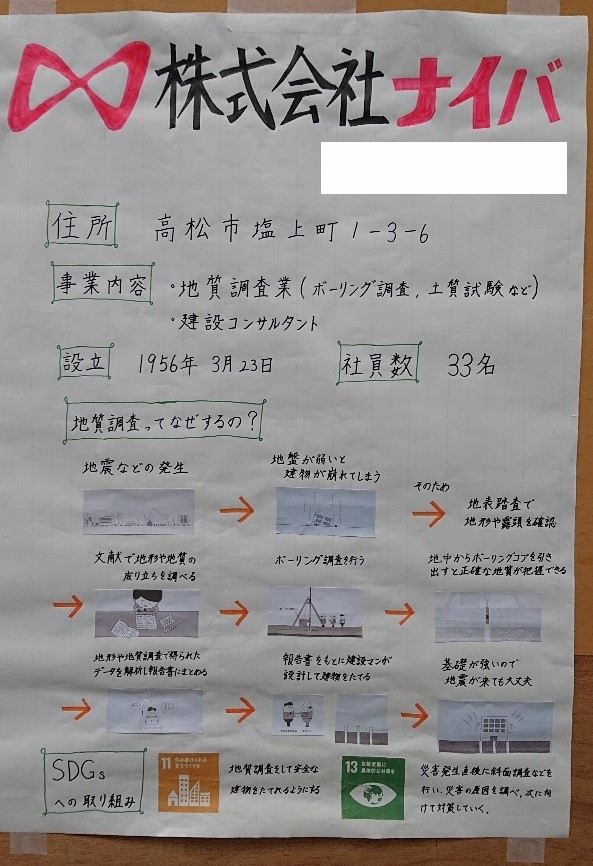 株式会社ナイバ
住所 高松市塩上町1-3-6
事業内容 ・地質調査業(ボーリング調査,土質試験など)
・建設コンサルタント
設立 1956年 3月23日 社員数 33名
地質調査ってなぜするの?
地震などの発生
→
地盤が弱いと
建物が崩れてしまう
そのため
→
地表踏査で
地形や露頭を確認
→
文献で地形や地質の
成り立ちを調べる
→
ボーリング調査を行う
→
地中からボーリングコアを引き
出すと正確な地質が把握できる
→
地形や地質調査で得られた
データを解析し報告書にまとめる
→
報告書をもとに建設マンが
設計して建物をたてる
→
基礎が強いので
地震が来ても大丈夫
SDGs
への取り組み
11 住み続けられる
まちづくりを
地質調査をして安全な
建物をたてれるようにする
13 気候変動に
具体的な対策を
災害発生直後に斜面調査などを
行い、災害の原因を調べ、次に向
けて対策していく。